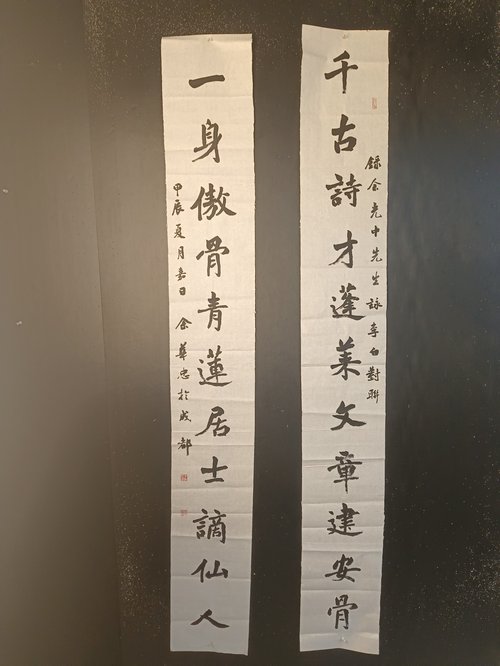 錄余光中先生詠李白對聯
千古詩才蓬萊文章建安骨
一身傲骨青蓮居士謫仙人
甲辰夏月嘉日 余華忠於成都